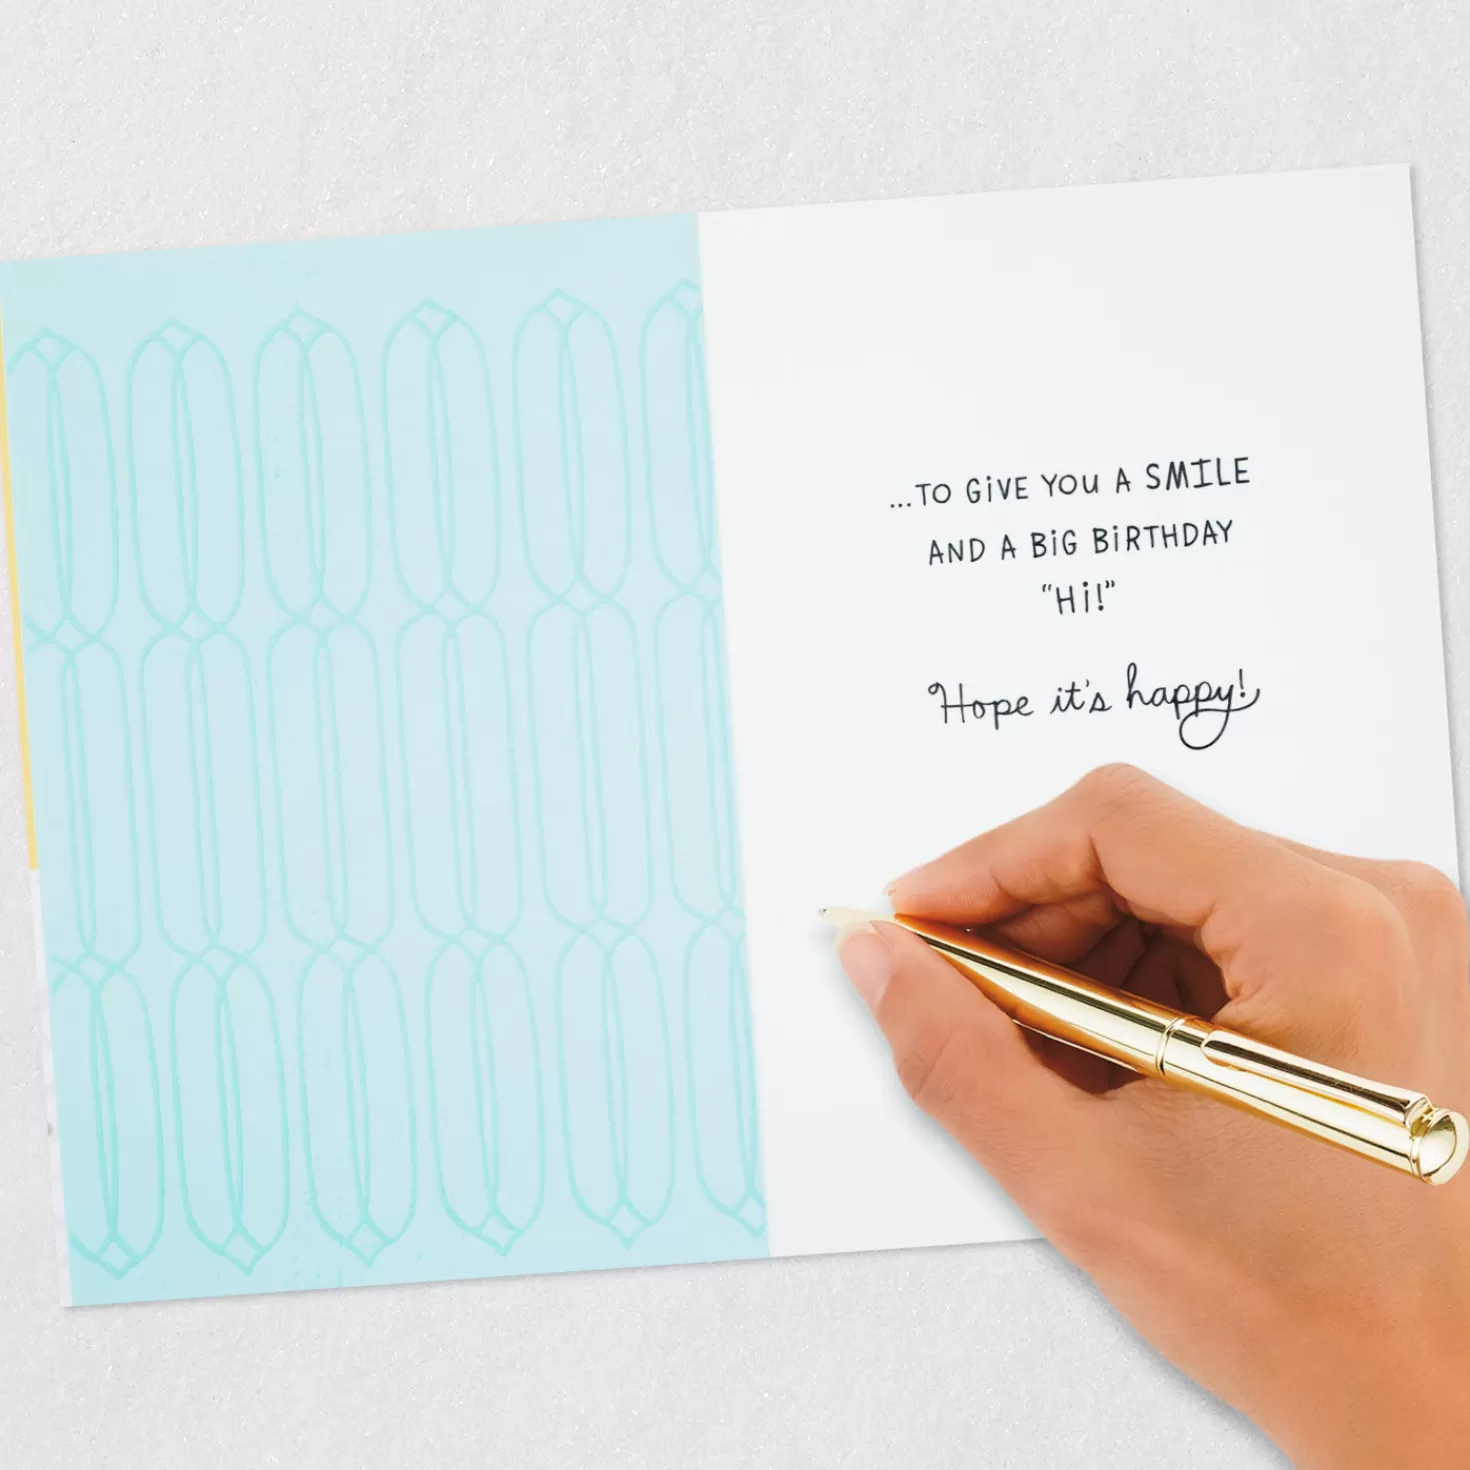 ...TO GiVE YOU A SMILE
AND A BiG BiRTHDAY
“Hi!”
Hope it's happy!